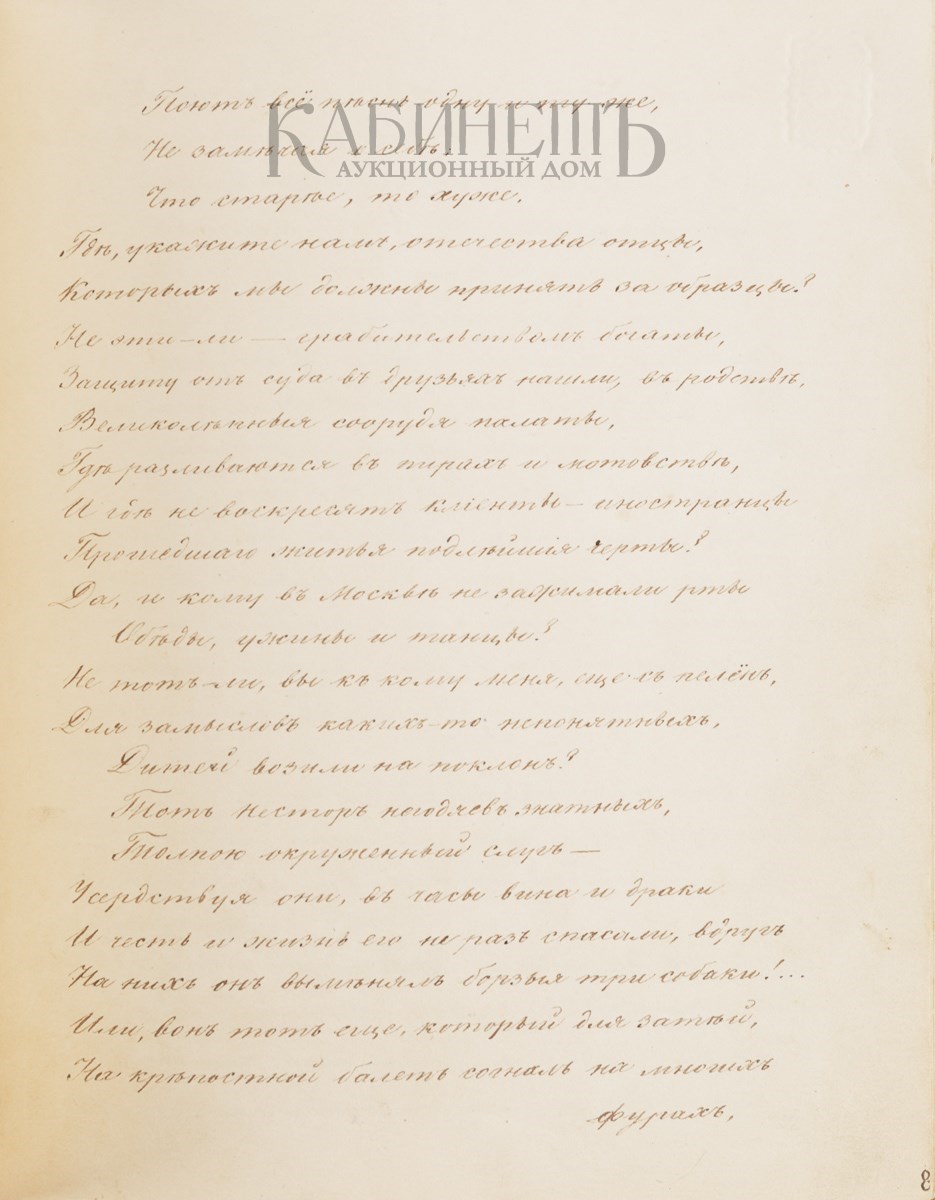 КАБИНЕТЪ
АУКЦИОННЫЙ ДОМ
Поютъ всё пѣснь одну и ту же,
Не замѣчая о себѣ:
Что старѣе, то хуже.
Гдѣ, укажите намъ, отечества отцы,
Которыхъ мы должны принять за образцы?
Не эти-ли — грабительствомъ богаты,
Защиту отъ суда въ друзьяхъ нашли, въ родствѣ,
Великолѣпныя соорудя палаты,
Гдѣ разливаются въ пирахъ и мотовствѣ,
И гдѣ не воскресятъ кліенты – иностранцы
Прошедшаго житья подлѣйшія черты?
Да, и кому въ Москвѣ не зажимали рты
Обѣды, ужины и танцы?
Не тотъ-ли, вы къ кому меня, еще съ пелёнъ,
Для замысловъ какихъ-то непонятныхъ,
Дитей возили на поклонъ?
Тотъ Несторъ негодяевъ знатныхъ,
Толпою окруженный слугъ —
Усердствуя они, въ часы вина и драки
И честь и жизнь его не разъ спасали, вдругъ
На нихъ онъ вымѣнялъ борзыя три собаки!...
Или, вонъ тотъ еще, который для затѣй,
На крѣпостной балетъ согналъ на многихъ
фурахъ,
8